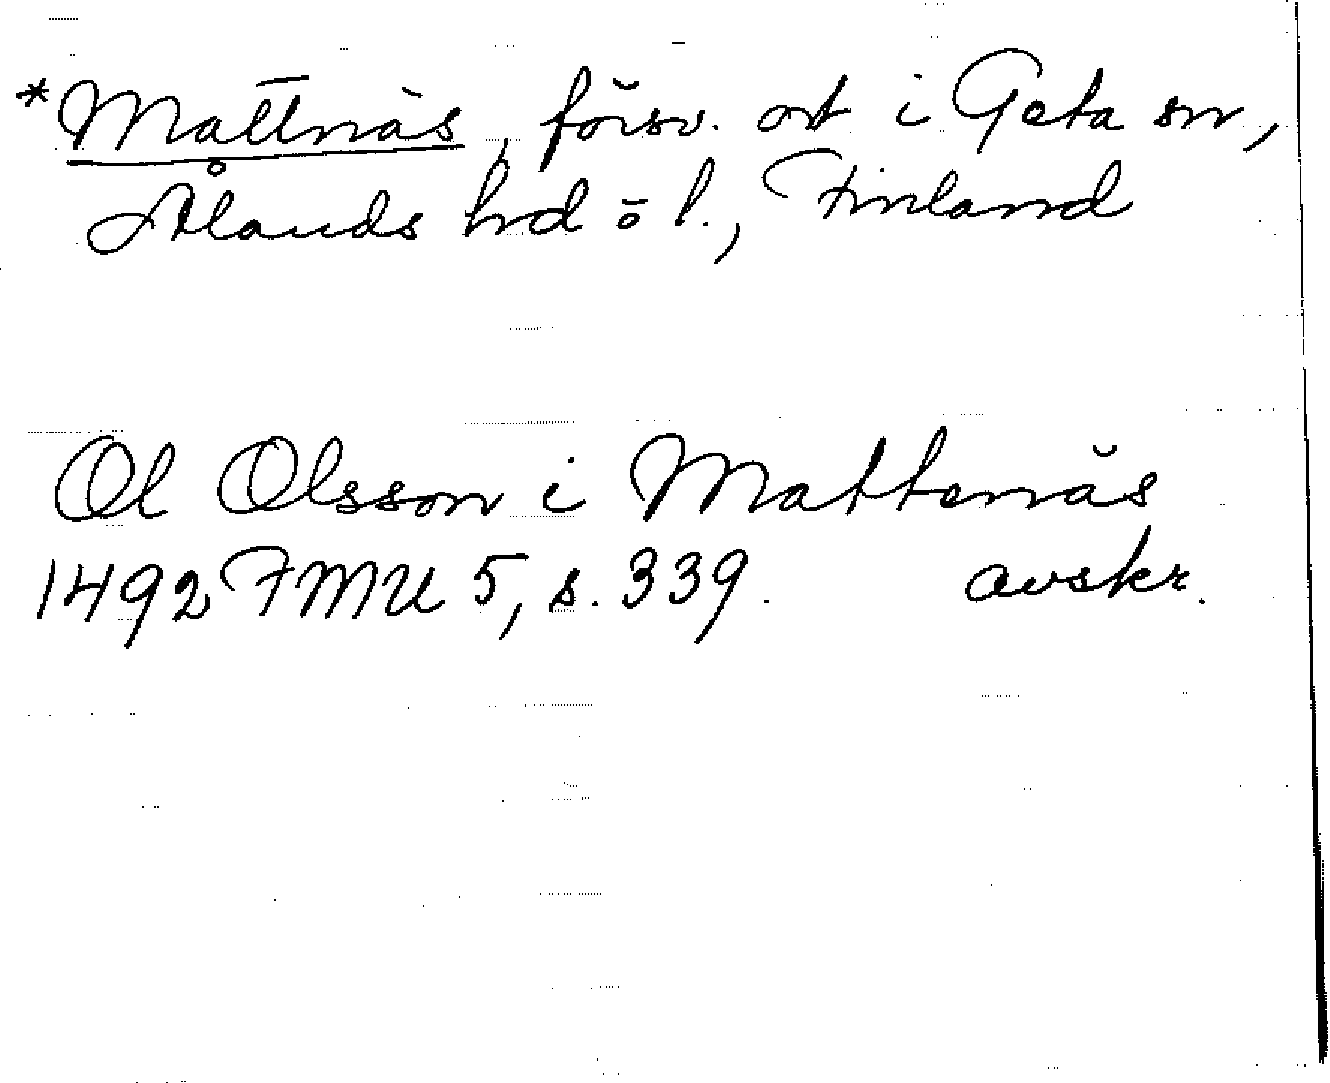 *Mattnäs, försv. ort i Geta sn,
Ålands hrd o l., Finland
Ol Olsson i Mattenäs
1492 FMU 5, s. 339. avskr.